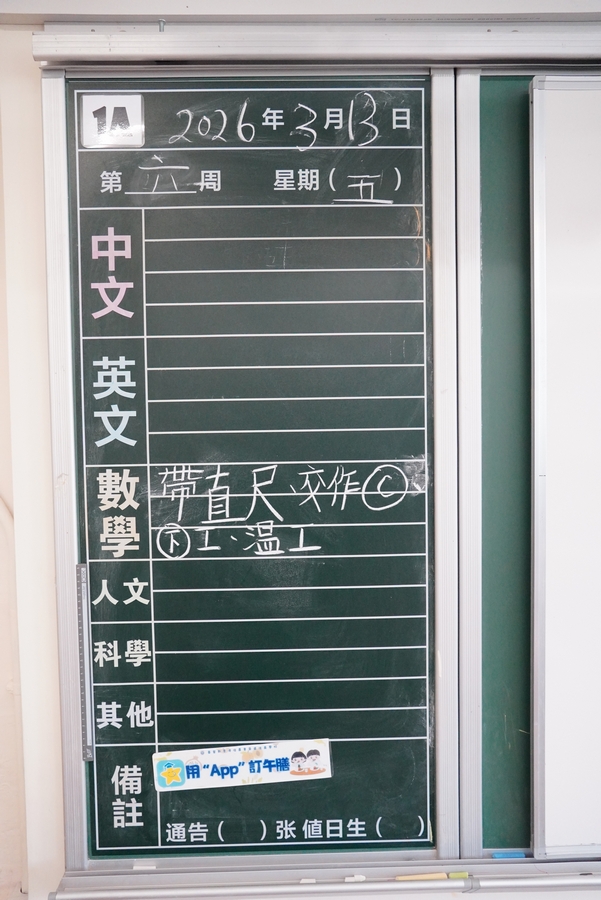 1A 2026年3月13日
第 六 周 星期(五)
中文
英文
數學
帶直尺、交作Ⓒ
下工、温工
人文
科學
其他
備註
用“App”訂午膳
通告( )张 值日生( )